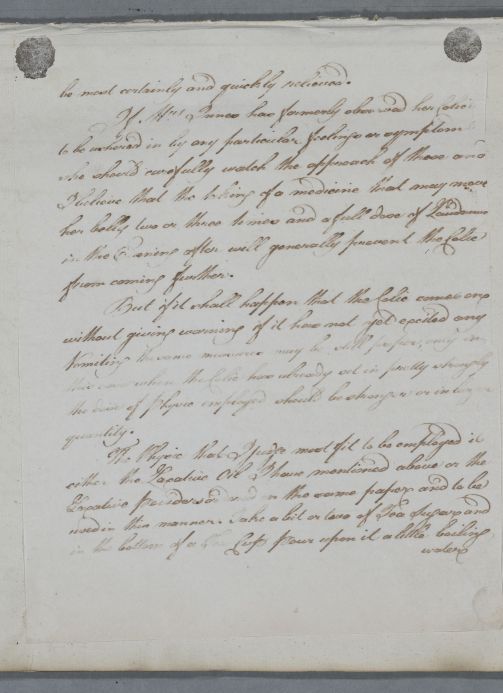 be most certainly and quickly relieved.
If Mrs Innes has formerly observed her Colic
to be ushered in by any particular feelings or symptom
she should carefully watch the approach of these and
I believe that the taking of a medicine that may move
her belly two or three times and a full dose of Laudanum
in the Evening after will generally prevent the Colic
from coming further.
But if it shall happen that the Colic comes on
without giving warning if it has not yet excited any
Vomiting the same measures may be still proper, only in
this case when the Colic has already set in pretty strongly
the dose of Physic employed should be stronger or in larger
quantity.
The Physic that I judge most fit to be employed is
either the Laxative Oil I have mentioned above or the
Laxative Powders and in the same paper and to be
used in this manner. Take a bit or two of Tea Sugar and
in the bottom of a Tea Cup pour upon it a little boiling
water